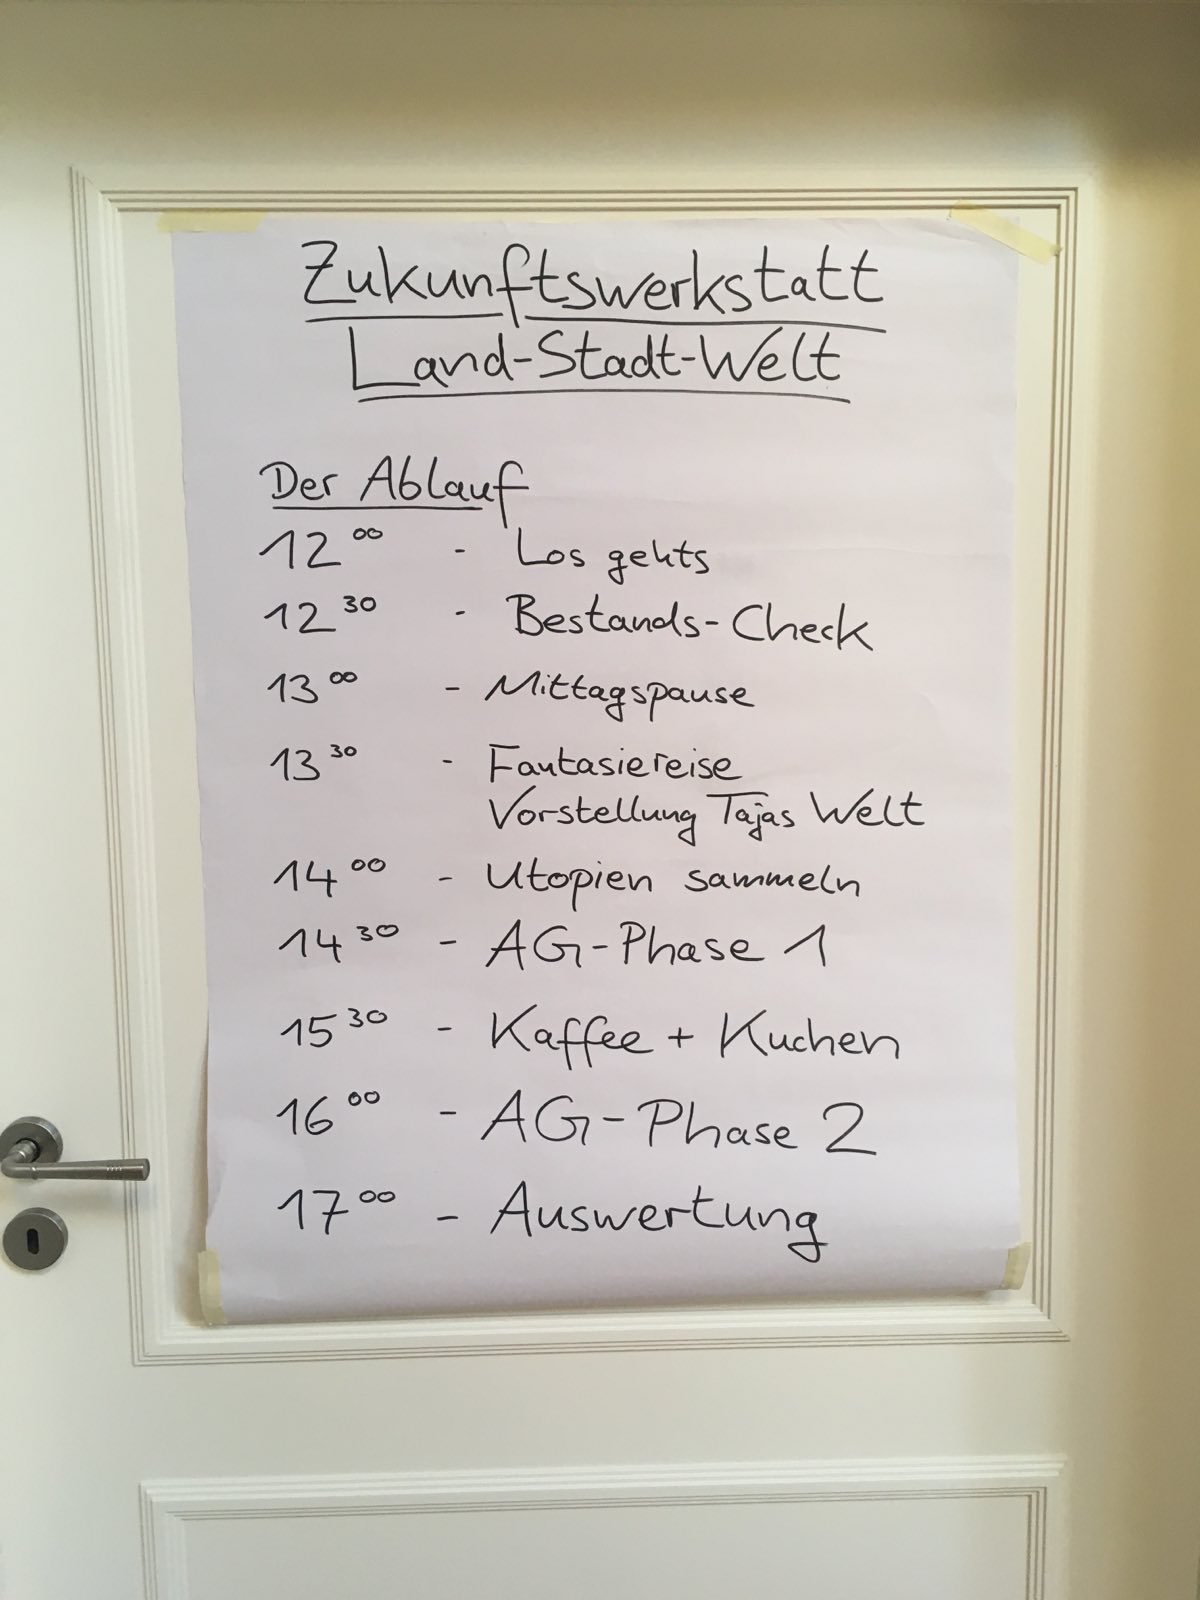 Zukunftswerkstatt
Land-Stadt-Welt
Der Ablauf
12⁰⁰ - Los gehts
12³⁰ - Bestands-Check
13⁰⁰ - Mittagspause
13³⁰ - Fantasiereise
Vorstellung Tajas Welt
14⁰⁰ - Utopien sammeln
14³⁰ - AG-Phase 1
15³⁰ - Kaffee + Kuchen
16⁰⁰ - AG-Phase 2
17⁰⁰ - Auswertung